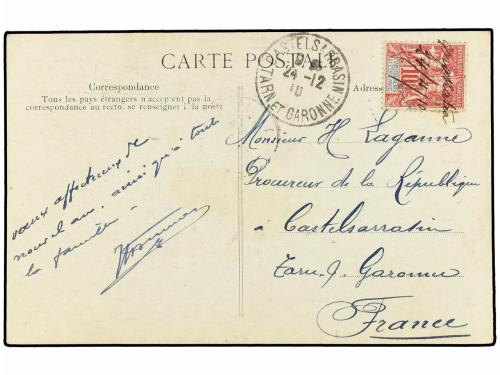 CARTE POSTALE
Correspondance
Tous les pays étrangers n'acceptent pas la
correspondance au recto, se renseigner à la poste
Adresse
CASTELSARRASIN
24-12
10
TARN ET GARONNE
10
Monsieur H. Laganne
Procureur de la République
à Castelsarratin
Tarn & Garonne
France
vœux affectueux de
nouvel an, ainsi qu'à toute
la famille